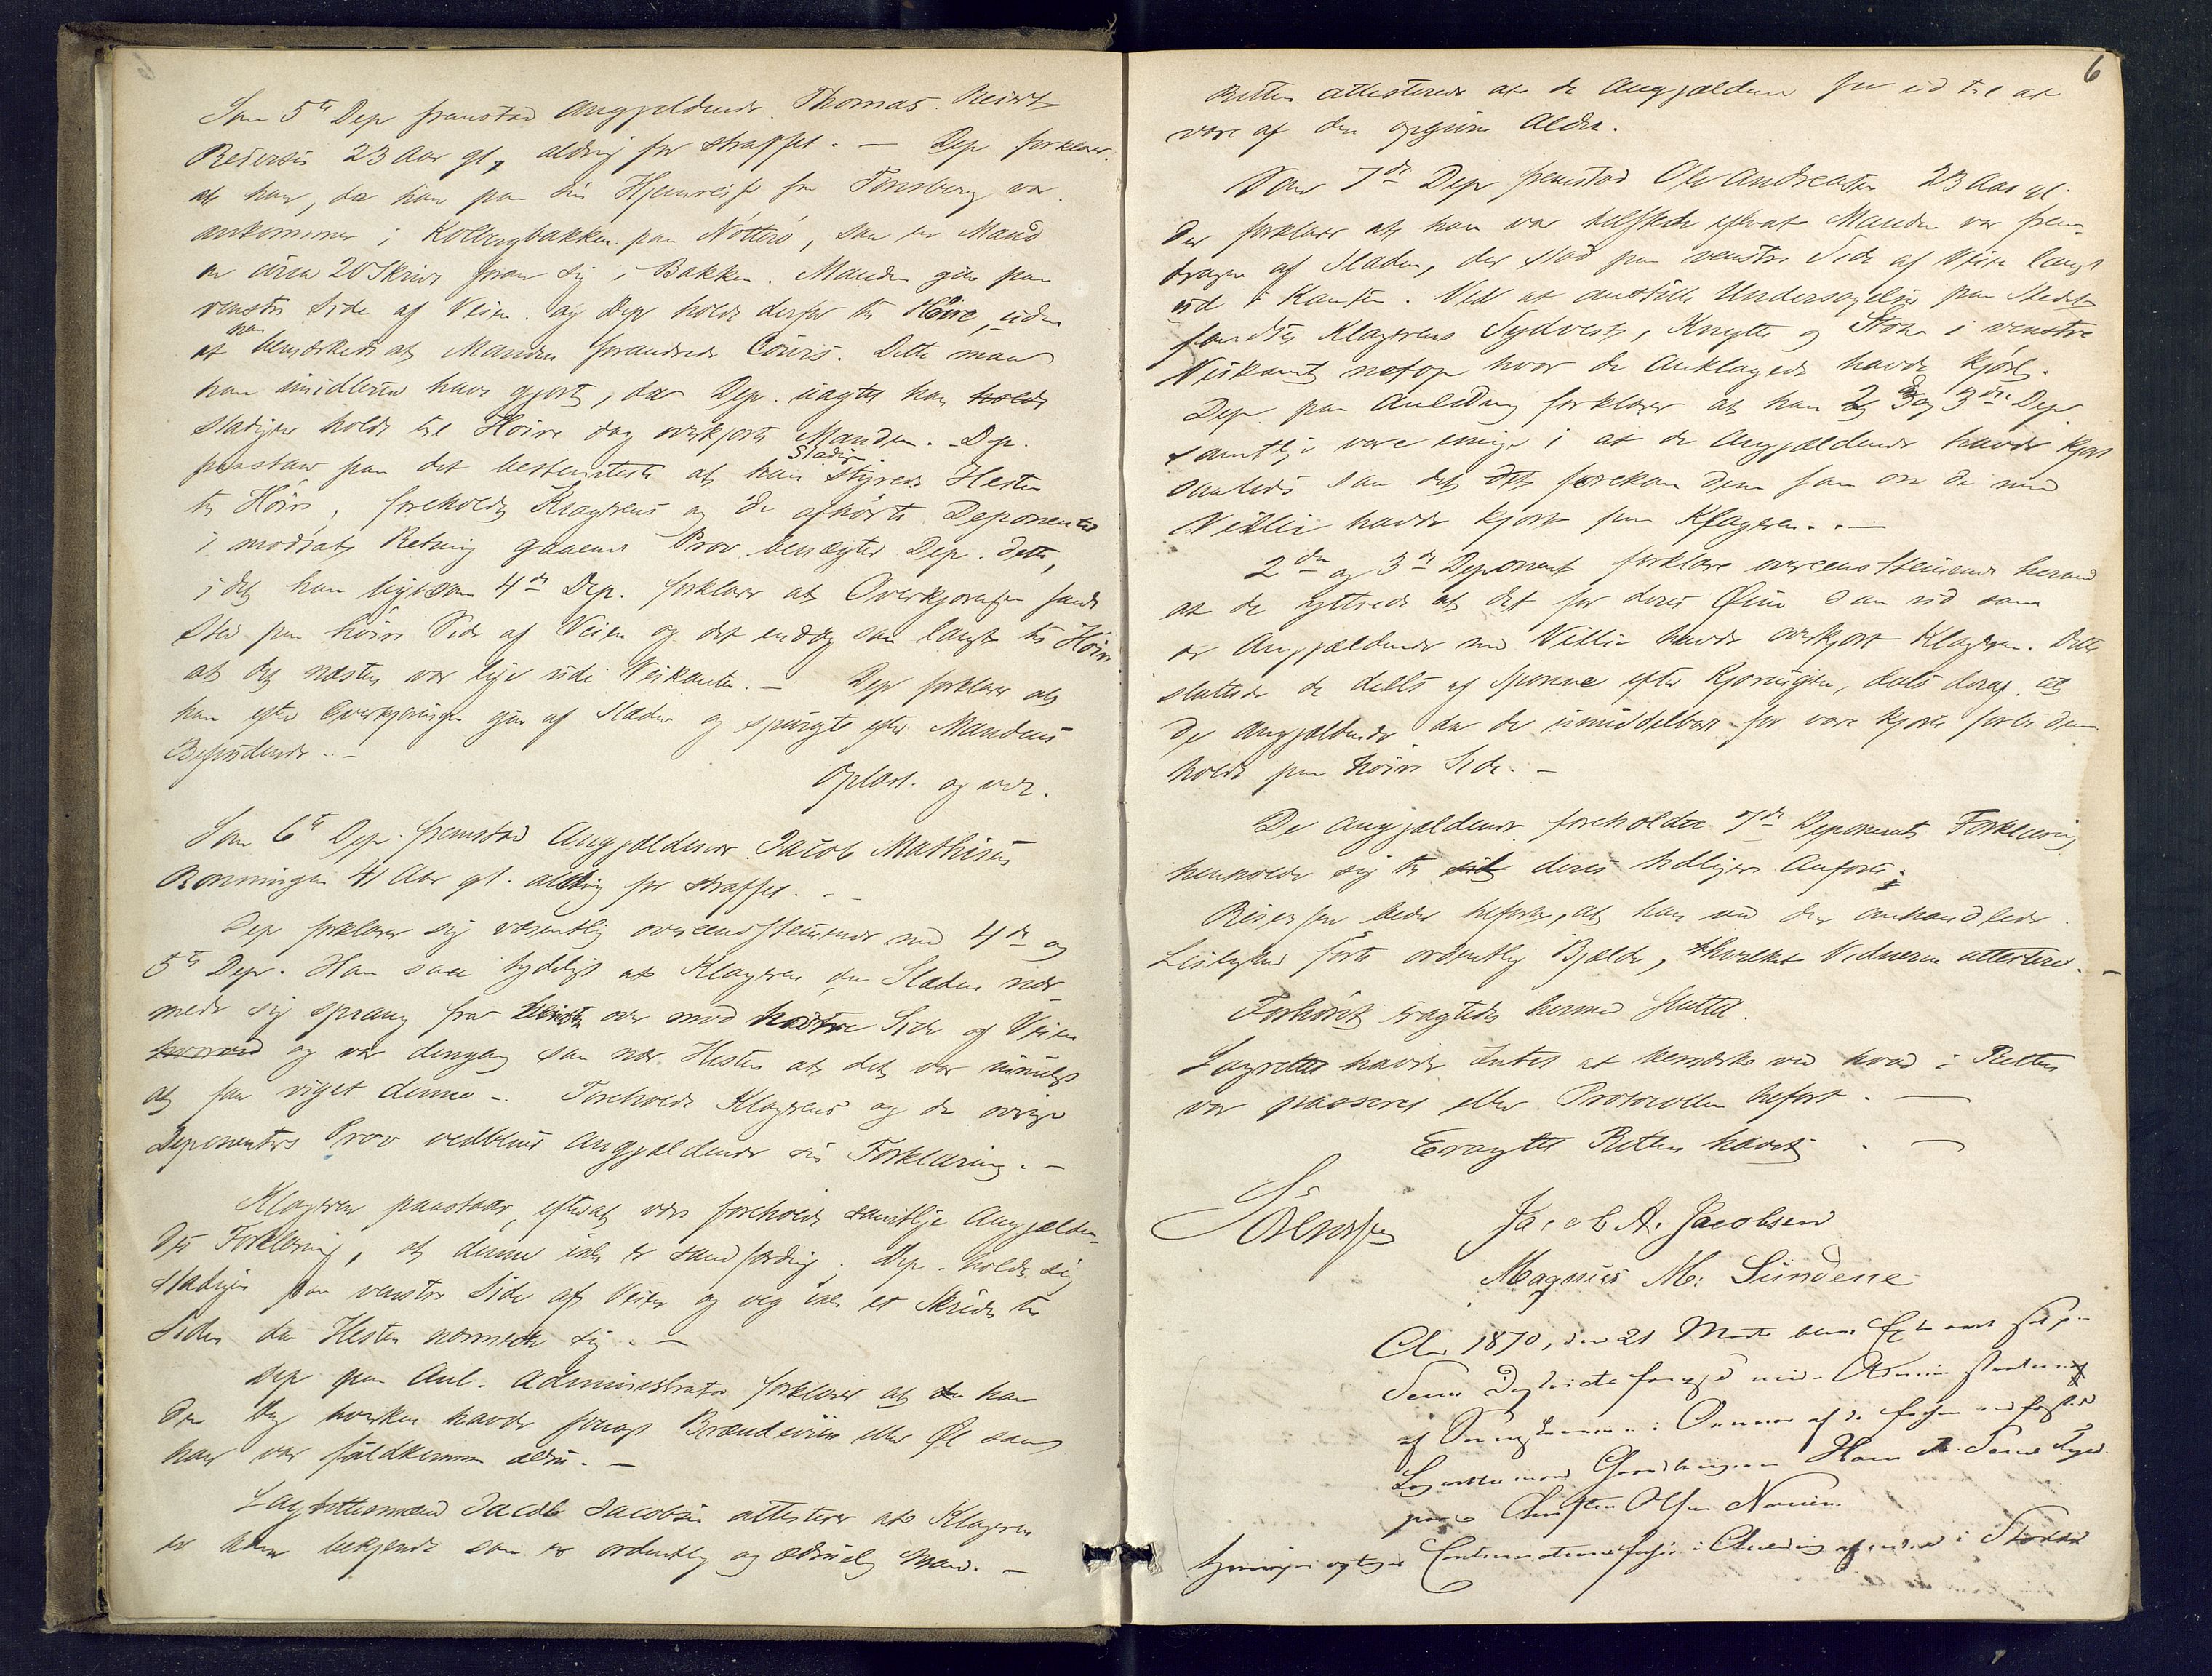 Som 5te Dep fremstod Angjeldende Thomas
Reiersen 23 Aar gl, aldrig før straffet. — Dep forklarer
at han, da han paa sin Hjemreise fra Tønsberg var
ankommen i Kolbergbakken paa Nøtterø, saa en Mand
en circa 20 Skridt foran sig i Bakken. Manden gik paa
venstre Side af Veien og Dep holdt derfor til Høire, uden
at han bemærkede at Manden forandrede Cours. Dette maa
han imidlertid have gjort, da Dep. uagtet han holdt
stadigen holdt til Høire dog overkjørte Manden. Dep.
paastaar paa det bestemteste at han stadig styrede Hesten
til Høire, foreholdt Klagerens og de afhørte Deponenters
i modsat Retning gaaende Prov benægter Dep. dette,
idet han ligesom 4de Dep. forklarer at Overkjørselen fandt
Sted paa høire Side af Veien og det endog saa langt til Høire
at det næsten var lige udi Veikanten. — Dep forklarer at
han efter Overkjøringen gik af Slæden og spurgte efter Mandens
Befindende. —
Oplæst. og vedt.
Som 6te Dep. fremstod Angjældende Jacob Mathisen
Rønningen 41 Aar gl. aldrig før straffet. —
Dep forklarer sig væsentlig overeensstemmende med 4de og
5te Dep. Han saae tydeligt at Klageren da Slæden nær-
mede sig sprang fra venstre over mod høire Side af Veien
og var dengang saa nær Hesten at det var umuligt
at faa viget denne. Foreholdt Klagerens og de øvrige
Deponenters Prov vedblev Angjældende sin Forklaring. —
Klageren paastaar, efterat være foreholdt samtlige Angjælden-
des Forklaring, at denne ikke er sandfærdig; Dep. holdt sig
stadigen paa venstre Side af Veien og veg ikke et Skridt til
Siden da Hesten nærmede sig. —
Dep paa Anl. Administrator forklarer at han
den Dag hverken havde smagt Brændeviin eller Øl samt
han var fuldkommen ædru. —
Lagrettesmand Jacob Jacobsen attesterer at Klageren
er ham bekjendt som en ordentlig og ædruelig Mand. —
6
Retten attesterede at de Angjældende saa ud til at
være af den opgivne Alder.
Som 7de Dep fremstod Ole Andreasen 23 Aar gl.
Der forklarer at han var tilstede efterat Manden var frem-
dragen af Slæden, der stod paa venstre Side af Veien langt
ud i Kanten. Ved at anstille Undersøgelse paa Stedet
fandtes Klagerens Sydvest, Knytte og Stok i venstre
Veikant netop hvor de Anklagede havde kjørt.
Dep paa Anledning forklarer at han 2 og 3die Dep
samtlige vare enige i at de Angjældende havde kjørt
saaledes saa det forekom dem som om de med
Villie havde kjørt paa Klageren. —
2den og 3die Deponent forklare overeensstemmende hermed
at de yttrede at det for deres Øine saa ud som
de Angjældende med Villie havde overkjørt Klageren. Dette
sluttede de deels af Sporene efter Kjøringen, deels deraf at
de Angjældende da de umiddelbart før vare kjørt forbi dem
holdt paa høire Side. —
De Angjældende foreholdte 7de Deponents Forklaring
henholdt sig til deres tidligere Anførte.
Reiersen beder tilført, at han ved den omhandlede
Leilighed førte ordentlig Bjælde, hvilket Vidnerne attesterer. —
Forhøret ragtedes hermed sluttet.
Lagrettet havde Intet at bemærke ved hvad i Retten
var passeret eller Protocollen tilført. —
Eragtet Retten hævet. —
Sørensen Jacob A. Jacobsen
Magnus M: Sundene
Aar 1870, den 21 Marts blev Extraret sat paa
af i Overvær af de
Lagrettemænd Gaardbruger Hans
Christen Olsen
i Anledning af